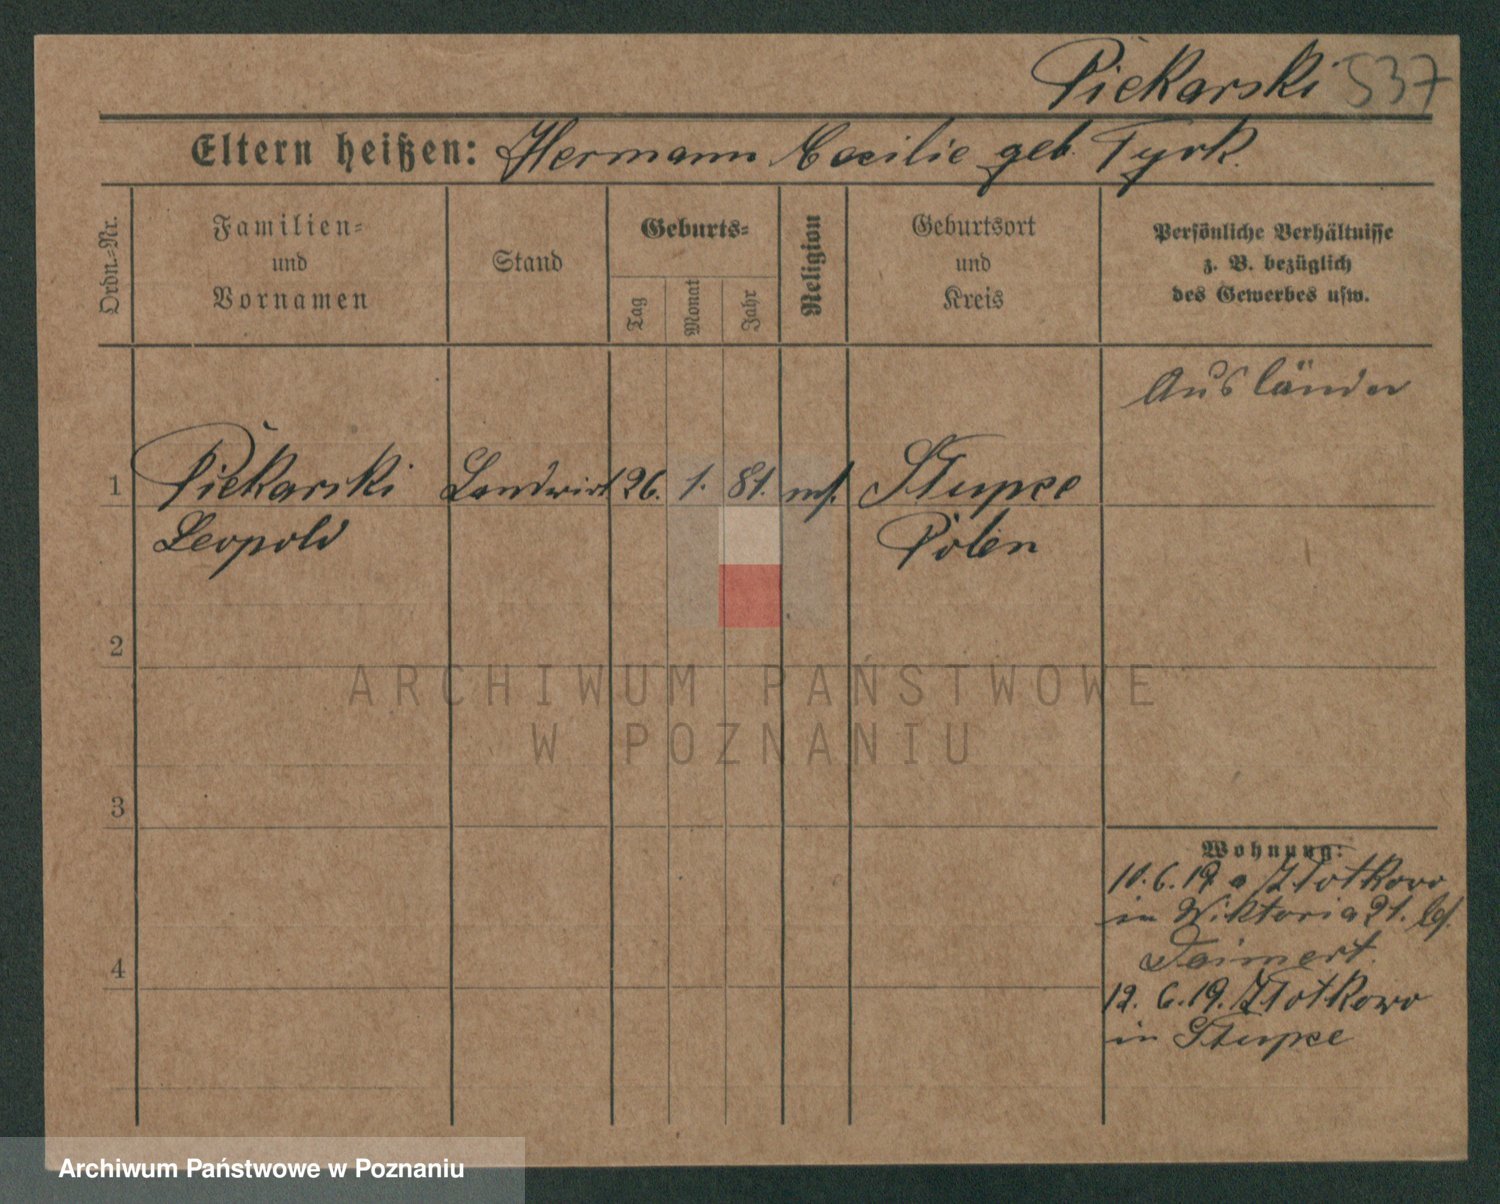 Piekarski 537
Eltern heißen: Hermann Caecilie geb. Tyrk.
Ordn.-Nr.
Familien-
und
Vornamen
Stand
Geburts-
Tag
Monat
Jahr
Religion
Geburtsort
und
Kreis
Persönliche Verhältnisse
z. B. bezüglich
des Gewerbes usw.
Ausländer
1 Piekarski Landwirt 26. 1. 81. Słupce
Leopold Polen
2
ARCHIWUM PAŃSTWOWE
W POZNANIU
3
Wohnung:
10.6.19 a Złotkowo
in Wiktoria 21. b/.
4
12. 6.19. Złotkowo
in Słupce
Archiwum Państwowe w Poznaniu